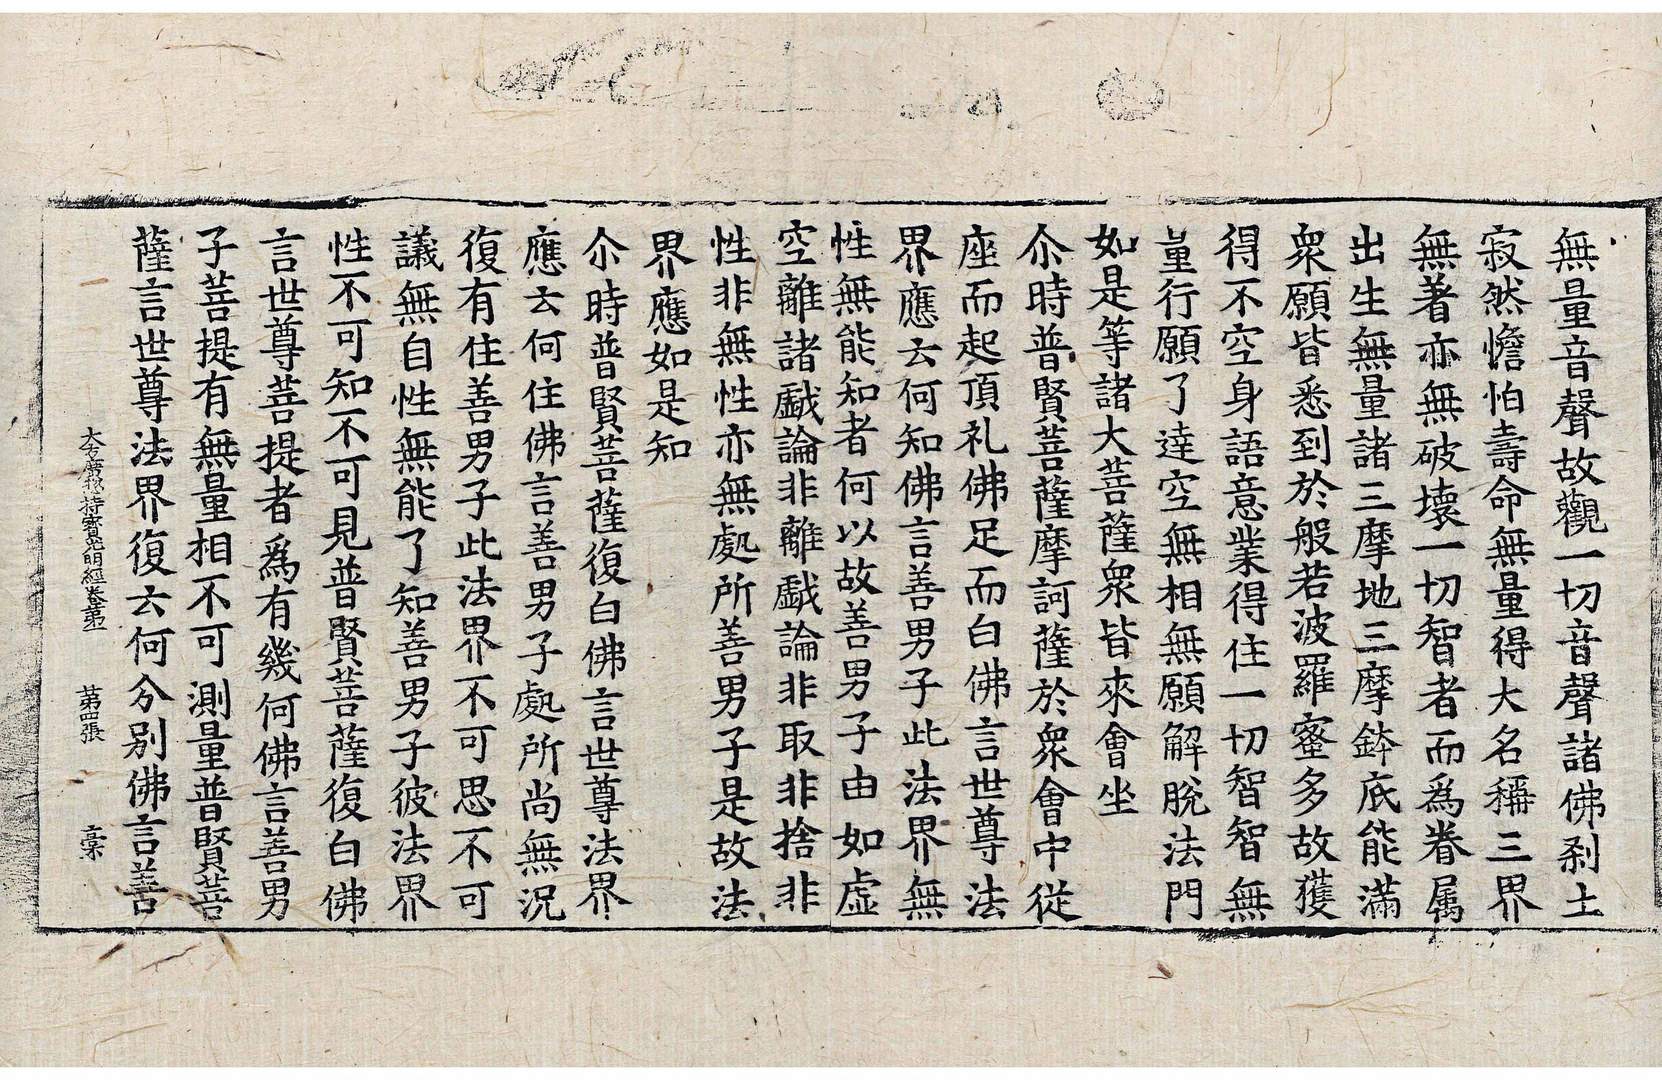 無量音聲故觀一切音聲諸佛剎土
寂然憺怕壽命無量得大名稱三界
無著亦無破壞一切智者而為眷属
出生無量諸三摩地三摩鉢底能滿
衆願皆悉到於般若波羅蜜多故獲
得不空身語意業得住一切智智無
量行願了達空無相無願解脫法門
如是等諸大菩薩衆皆來會坐
尒時普賢菩薩摩訶薩於衆會中從
座而起頂礼佛足而白佛言世尊法
界應云何知佛言善男子此法界無
性無能知者何以故善男子由如虛
空離諸戱論非離戱論非取非捨非
性非無性亦無處所善男子是故法
界應如是知
尒時普賢菩薩復白佛言世尊法界
應云何住佛言善男子處所尚無況
復有住善男子此法界不可思不可
議無自性無能了知善男子彼法界
性不可知不可見普賢菩薩復白佛
言世尊菩提者為有幾何佛言善男
子菩提有無量相不可測量普賢菩
薩言世尊法界復云何分別佛言善
大方廣揔持寳光明經卷第一 第四張